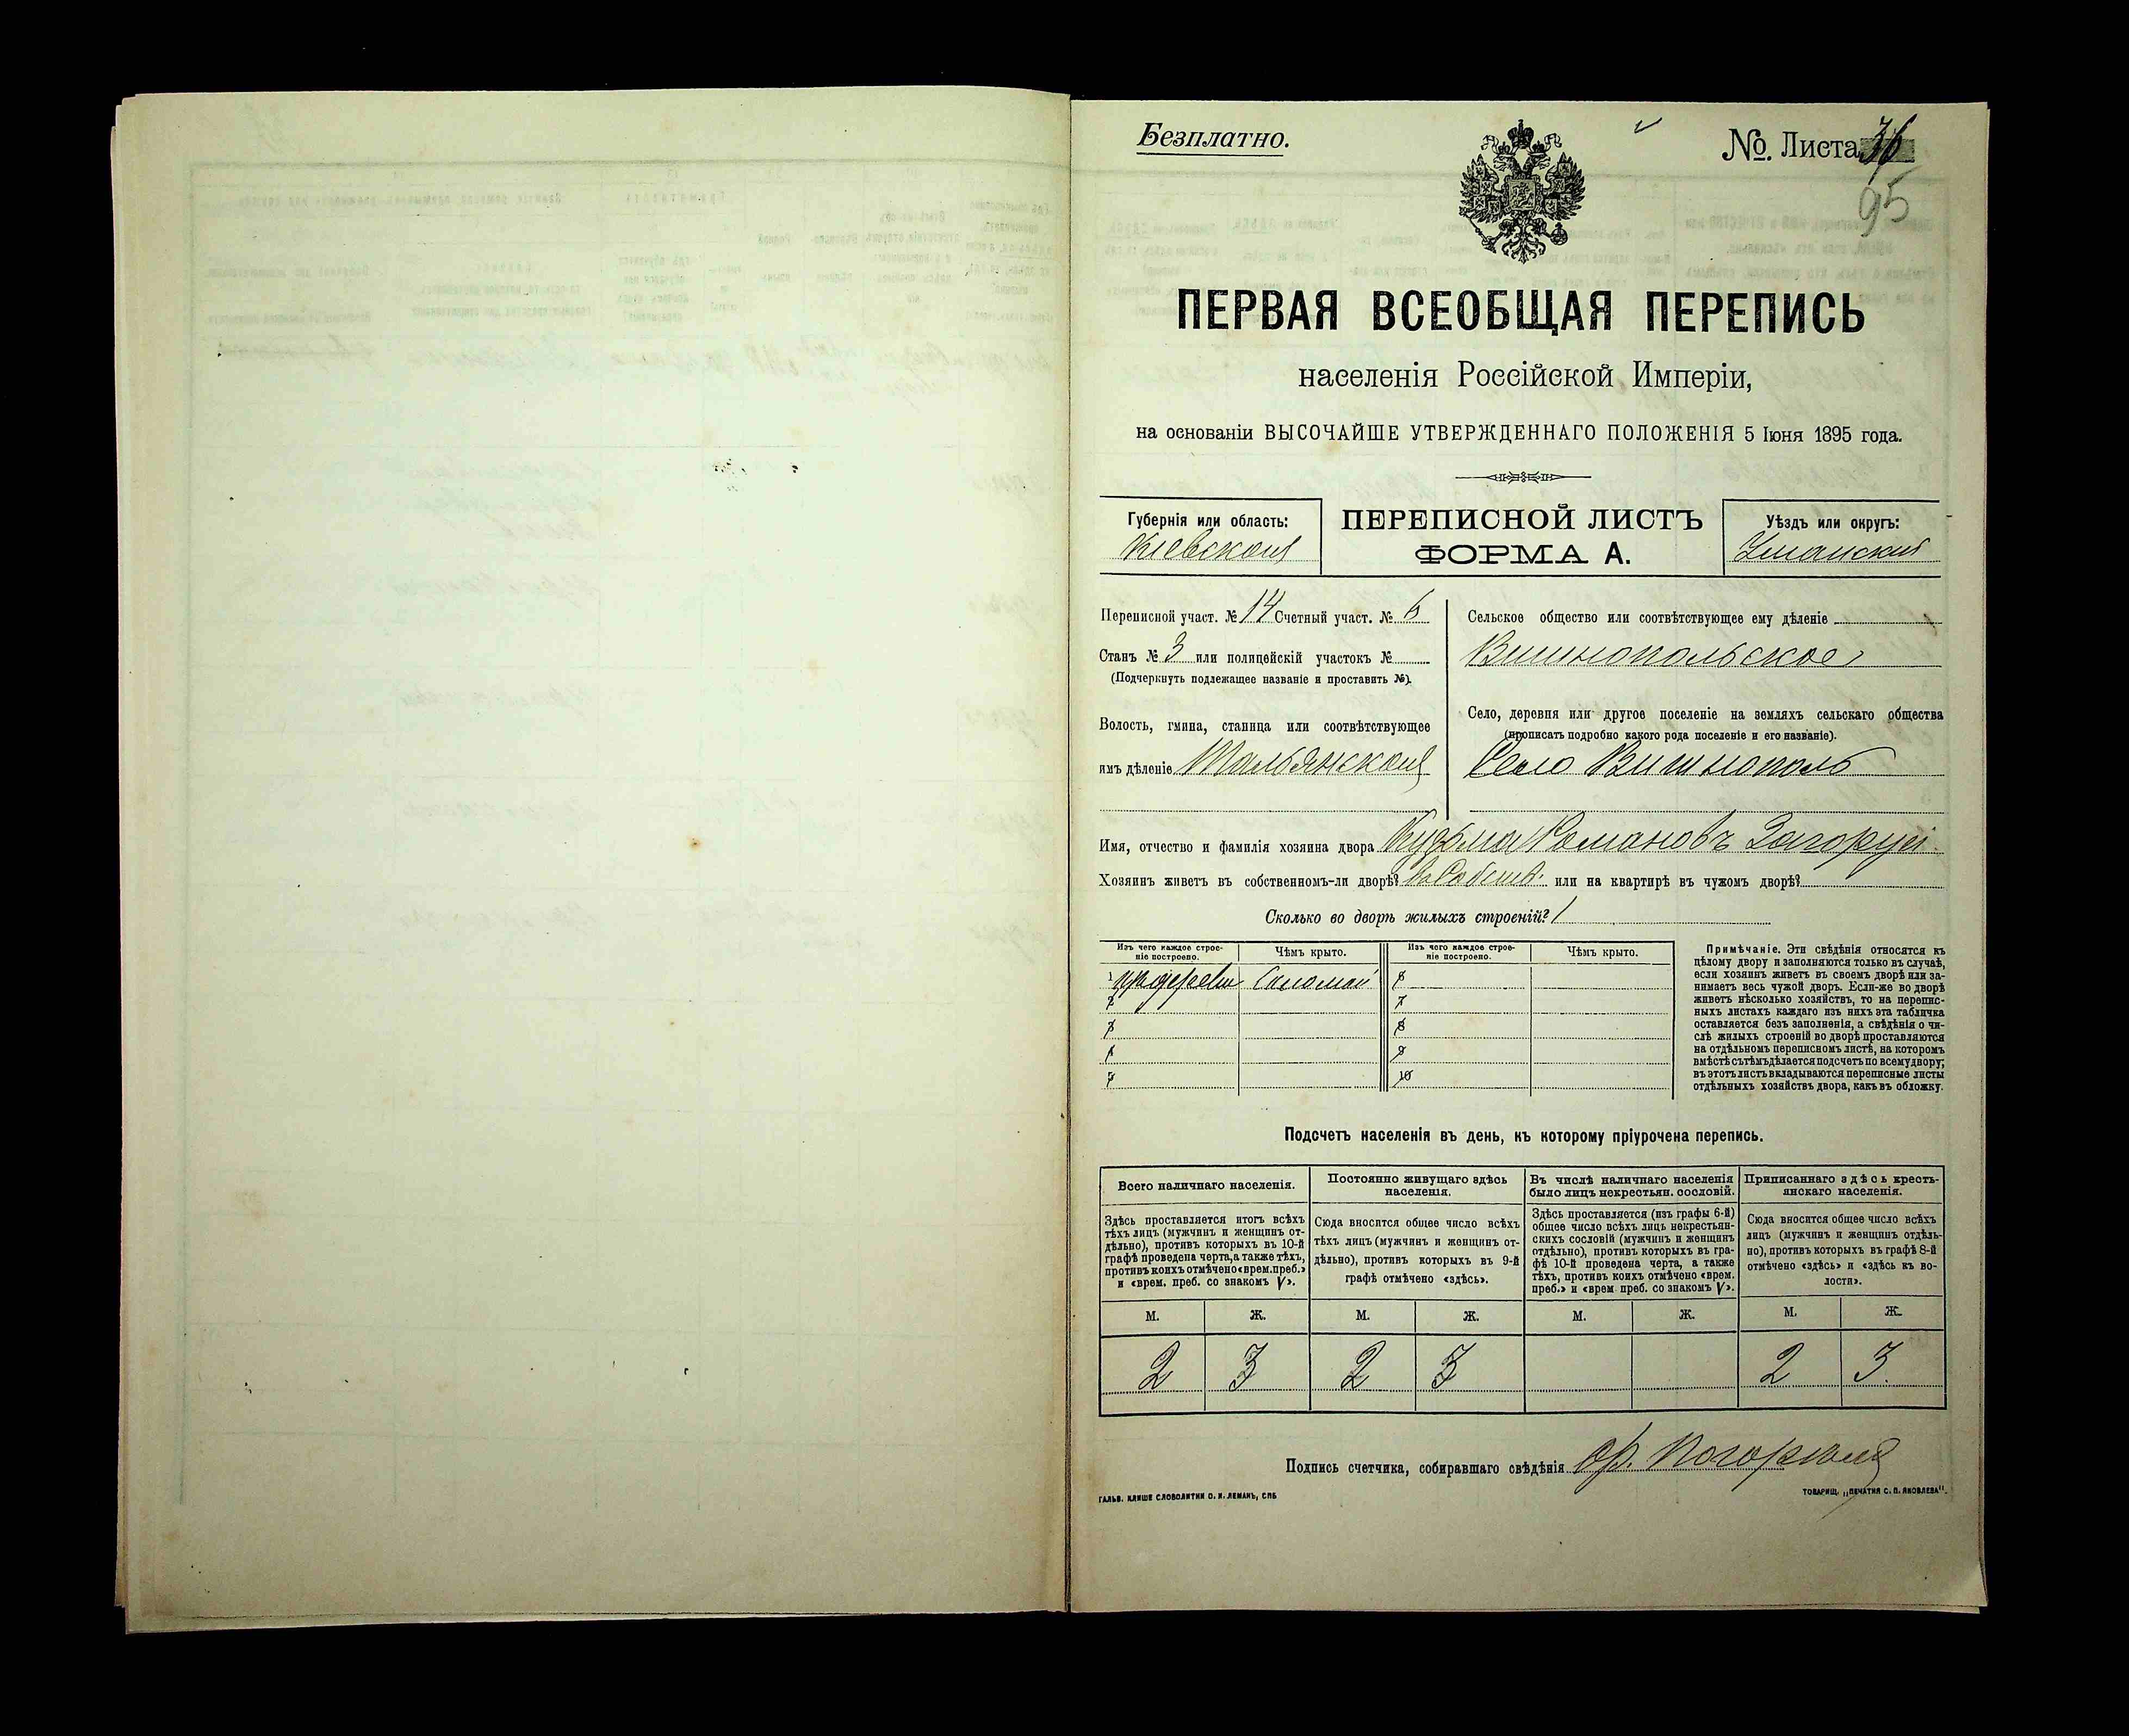 Безплатно.
№. Листа 36
95
ПЕРВАЯ ВСЕОБЩАЯ ПЕРЕПИСЬ
населенія Россійской Имперіи,
на основаніи ВЫСОЧАЙШЕ УТВЕРЖДЕННАГО ПОЛОЖЕНІЯ 5 Іюня 1895 года.
Губернія или область:
Кіевская
ПЕРЕПИСНОЙ ЛИСТЪ
ФОРМА А.
Уѣздъ или округъ:
Уманский
Переписной участ. № 14 Счетный участ. № 6
Станъ № 3 или полицейскій участокъ №
(Подчеркнуть подлежащее названіе и проставить №).
Волость, гмина, станица или соотвѣтствующее
имъ дѣленіе Тальянская
Сельское общество или соотвѣтствующее ему дѣленіе
Вишнопольское
Село, деревня или другое поселеніе на земляхъ сельскаго общества
(прописать подробно какого рода поселеніе и его названіе).
Село Вишнополь
Имя, отчество и фамилія хозяина двора Кузьма Романовъ
Хозяинъ живетъ въ собственномъ-ли дворѣ? въ Собств. или на квартирѣ въ чужомъ дворѣ?
Сколько во дворѣ жилыхъ строеній? 1
Изъ чего каждое строе-
ніе построено.
Чѣмъ крыто.
Изъ чего каждое строе-
ніе построено.
Чѣмъ крыто.
1 Соломой 6
2 7
3 8
4 9
5 10
Примѣчаніе. Эти свѣдѣнія относятся къ
цѣлому двору и заполняются только въ случаѣ,
если хозяинъ живетъ въ своемъ дворѣ или за-
нимаетъ весь чужой дворъ. Если-же во дворѣ
живетъ нѣсколько хозяйствъ, то на перепис-
ныхъ листахъ каждаго изъ нихъ эта табличка
оставляется безъ заполненія, а свѣдѣнія о чи-
слѣ жилыхъ строеній во дворѣ проставляются
на отдѣльномъ переписномъ листѣ, на которомъ
вмѣстѣ съ тѣмъ дѣлается подсчетъ по всему двору;
въ этотъ листъ вкладываются переписные листы
отдѣльныхъ хозяйствъ двора, какъ въ обложку.
Подсчетъ населенія въ день, къ которому пріурочена перепись.
Всего наличнаго населенія.
Здѣсь проставляется итогъ всѣхъ
тѣхъ лицъ (мужчинъ и женщинъ от-
дѣльно), противъ которыхъ въ 10-й
графѣ проведена черта, а также тѣхъ,
противъ коихъ отмѣчено «врем. преб.»
и «врем. преб. со знакомъ V».
Постоянно живущаго здѣсь
населенія.
Сюда вносится общее число всѣхъ
тѣхъ лицъ (мужчинъ и женщинъ от-
дѣльно), противъ которыхъ въ 9-й
графѣ отмѣчено «здѣсь».
Въ числѣ наличнаго населенія
было лицъ некрестьян. сословій.
Здѣсь проставляется (изъ графы 6-й)
общее число всѣхъ лицъ некрестьян-
скихъ сословій (мужчинъ и женщинъ
отдѣльно), противъ которыхъ въ гра-
фѣ 10-й проведена черта, а также
тѣхъ, противъ коихъ отмѣчено «врем.
преб.» и «врем. преб. со знакомъ V».
Приписаннаго здѣсь кресть-
янскаго населенія.
Сюда вносится общее число всѣхъ
лицъ (мужчинъ и женщинъ отдѣль-
но), противъ которыхъ въ графѣ 8-й
отмѣчено «здѣсь» и «здѣсь къ во-
лости».
М. Ж. М. Ж. М. Ж. М. Ж.
2 3 2 3 2 3.
Подпись счетчика, собиравшаго свѣдѣнія
ГАЛЬВ. КЛИШЕ СЛОВОЛИТНИ О. И. ЛЕМАНЪ, СПБ
ТОВАРИЩ. „ПЕЧАТНЯ С. П. ЯКОВЛЕВА".